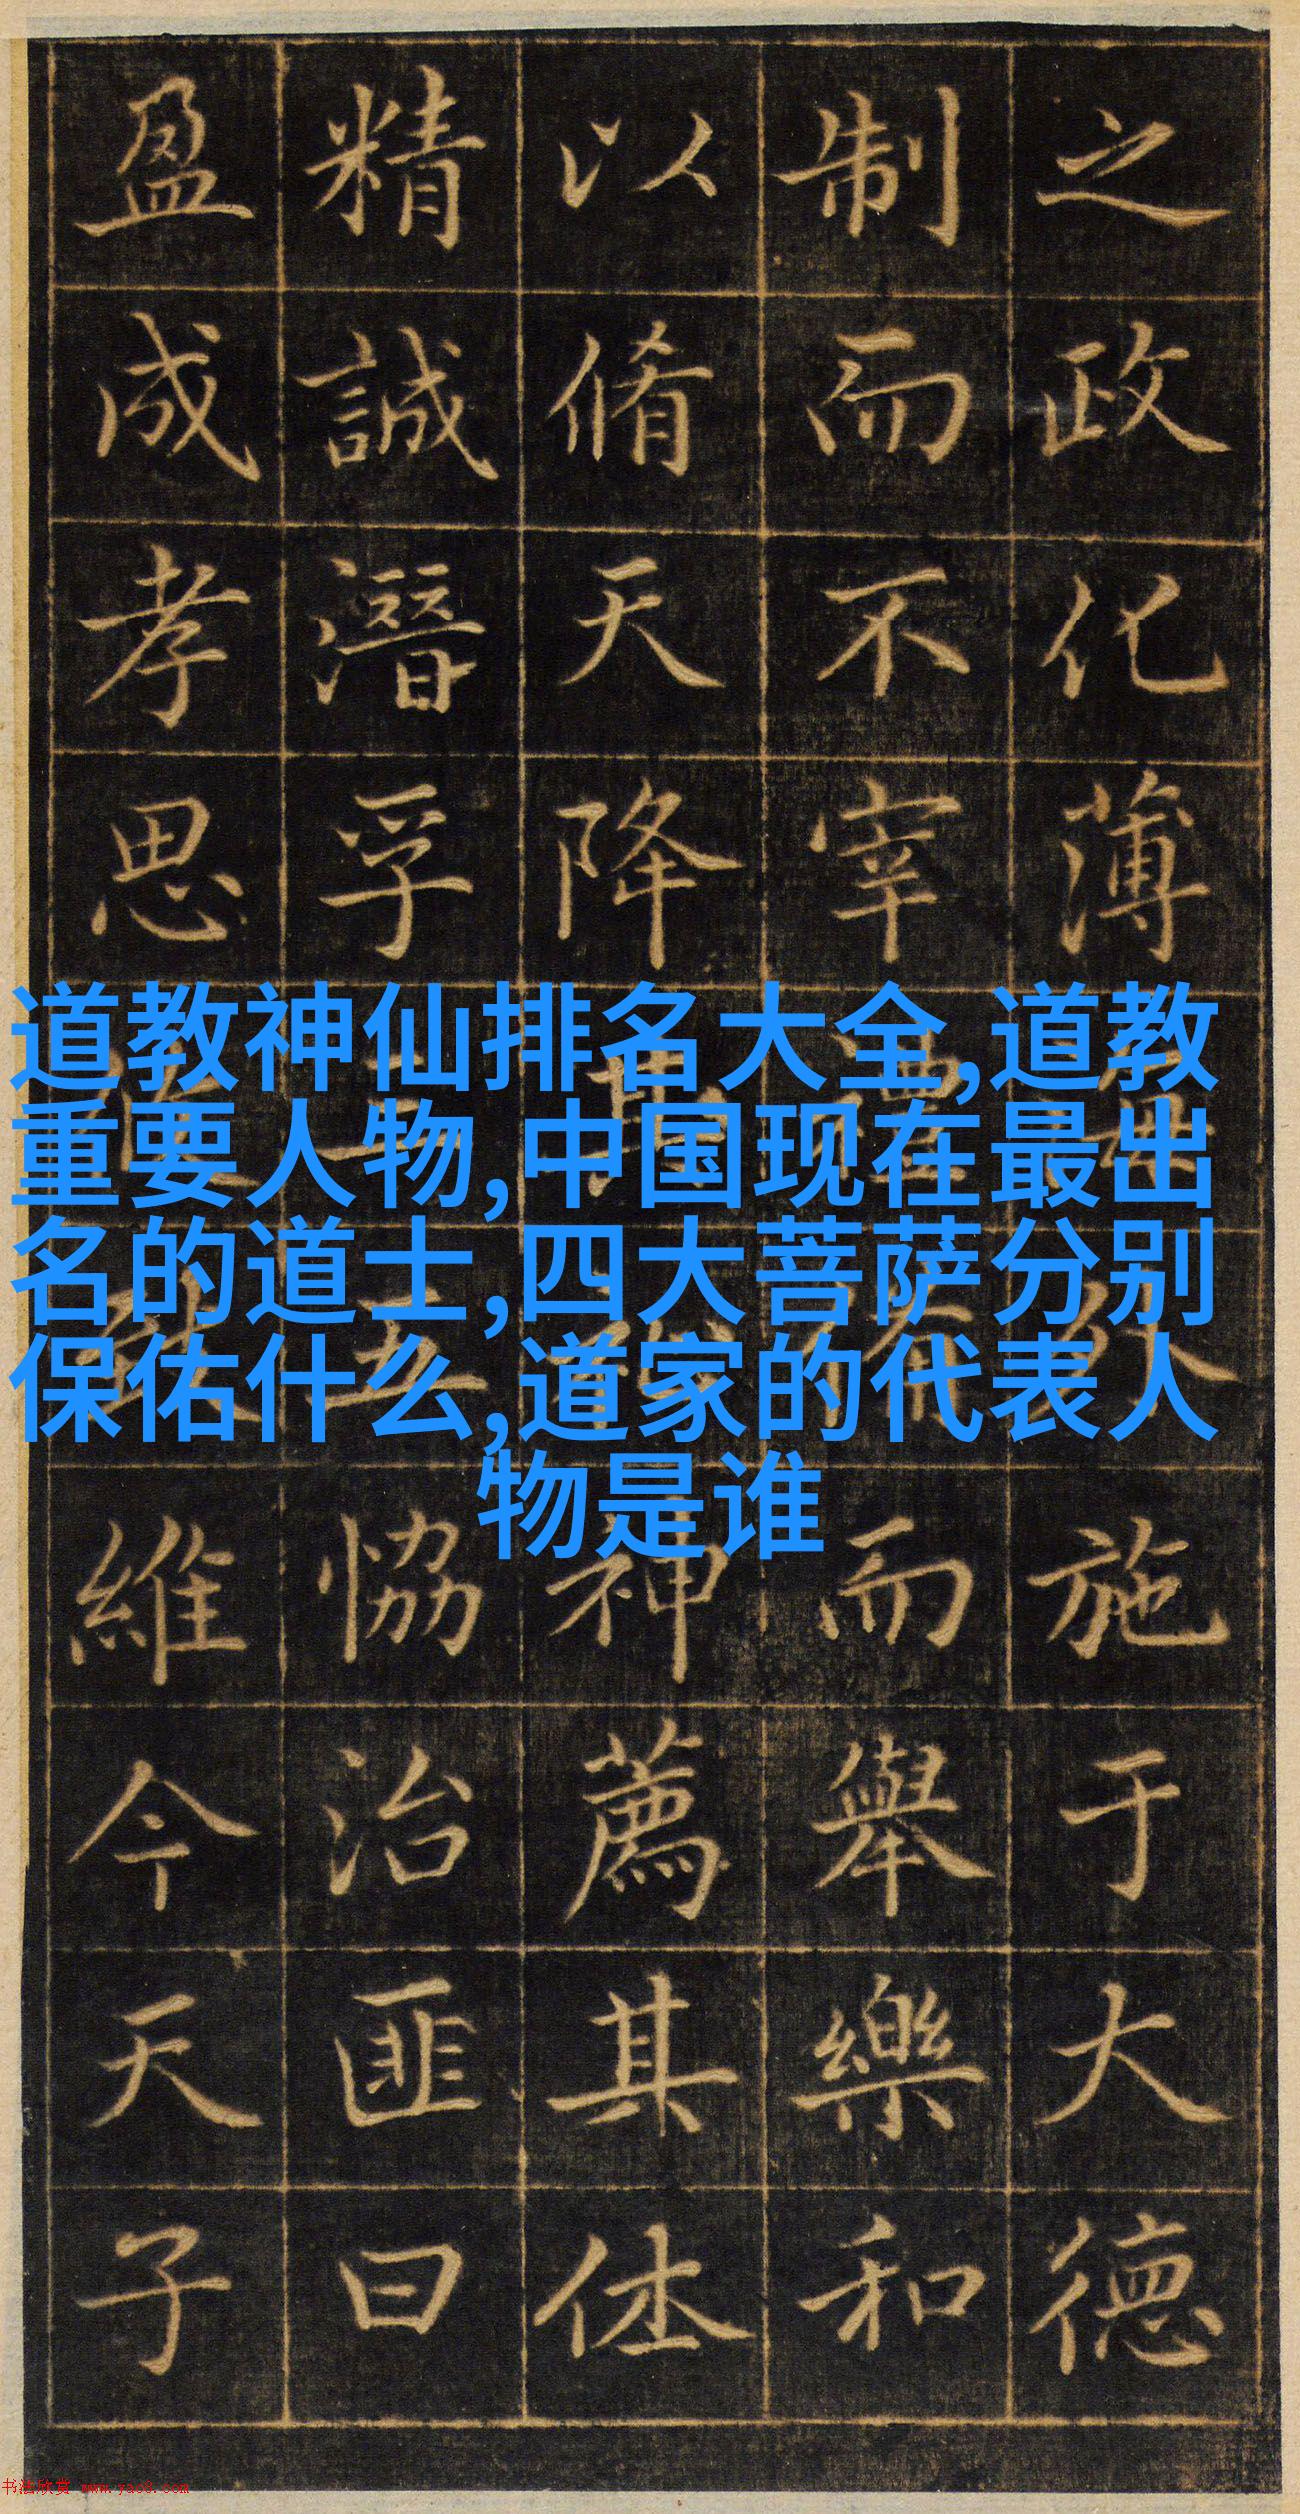 之政化薄施于大德
制而不宰而舉樂和
以脩天降神薦其休
精誠潛孚恊治匪曰
盈成孝思維今天子
道教神仙排名大全,道教
重要人物,中国现在最出
名的道士,四大菩萨分别
保佑什么,道家的代表人
物是谁
书法欣赏 www.yac8.com